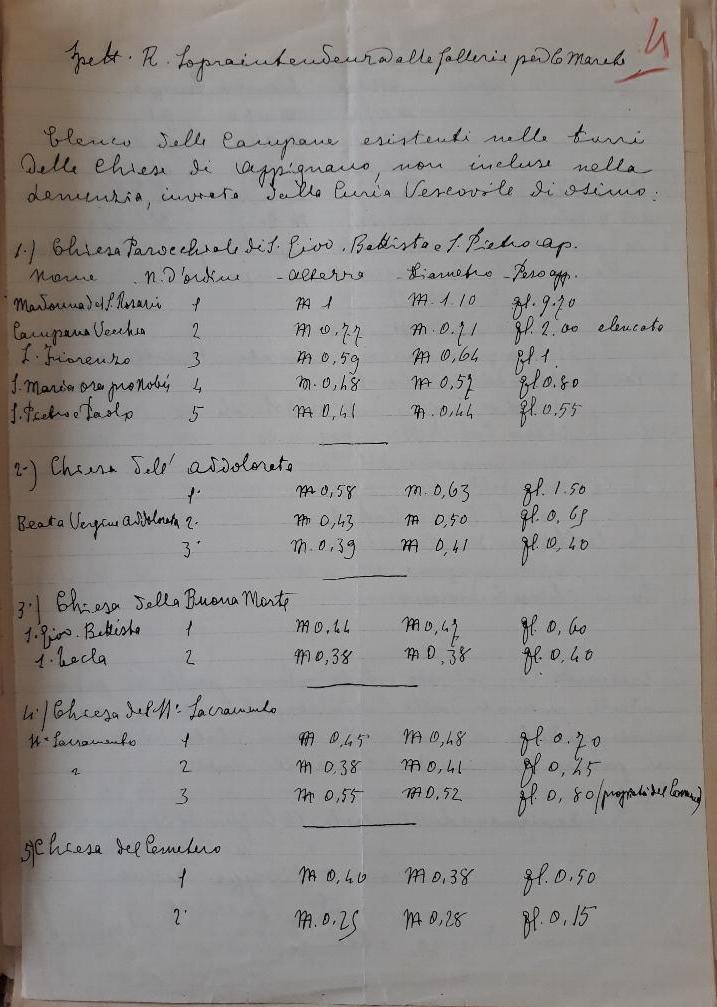 4
Spett. R. Sopraintendenza alle Gallerie per le Marche
Elenco delle Campane esistenti nelle torri
delle Chiese di Appignano, non incluse nella
denunzia, inviata dalla Curia Vescovile di Osimo:
1.) Chiesa Parocchiale di S. Giov. Battista e S. Pietro ap.
Nome N. d'ordine - altezza - Diametro - Peso app.
Madonna del S. Rosario 1 M 1 M. 1.10 ql. 9.70
Campana Vecchia 2 M 0,77 M. 0.71 ql. 2.00 elencata
S. Fiorenzo 3 M 0,59 M 0,64 ql. 1.
S. Maria ora pro nobis 4 M. 0,48 M 0,57 ql 0.80
S. Pietro e Paolo 5 M 0,41 M. 0.44 ql. 0.55
2-) Chiesa dell' Addolorata
1. M 0,58 M. 0,63 ql. 1.50
Beata Vergine Addolorata 2. M 0,43 M 0,50 ql. 0,65
3. M. 0.39 M 0,41 ql. 0,40
3.) Chiesa della Buona Morte
S. Giov. Battista 1 M 0,44 M 0,47 ql. 0,60
S. Tecla 2 M 0,38 M 0,38 ql. 0,40
4.) Chiesa del SS. Sacramento
SS. Sacramento 1 M 0,45 M 0,48 ql 0.70
" 2 M 0,38 M 0,41 ql 0,45
3 M 0,55 M 0,52 ql 0,80 (proprietà del Comune)
5) Chiesa del Cemetero
1 M 0,40 M 0.38 ql. 0.50
2. M. 0.25 M 0,28 ql. 0,15